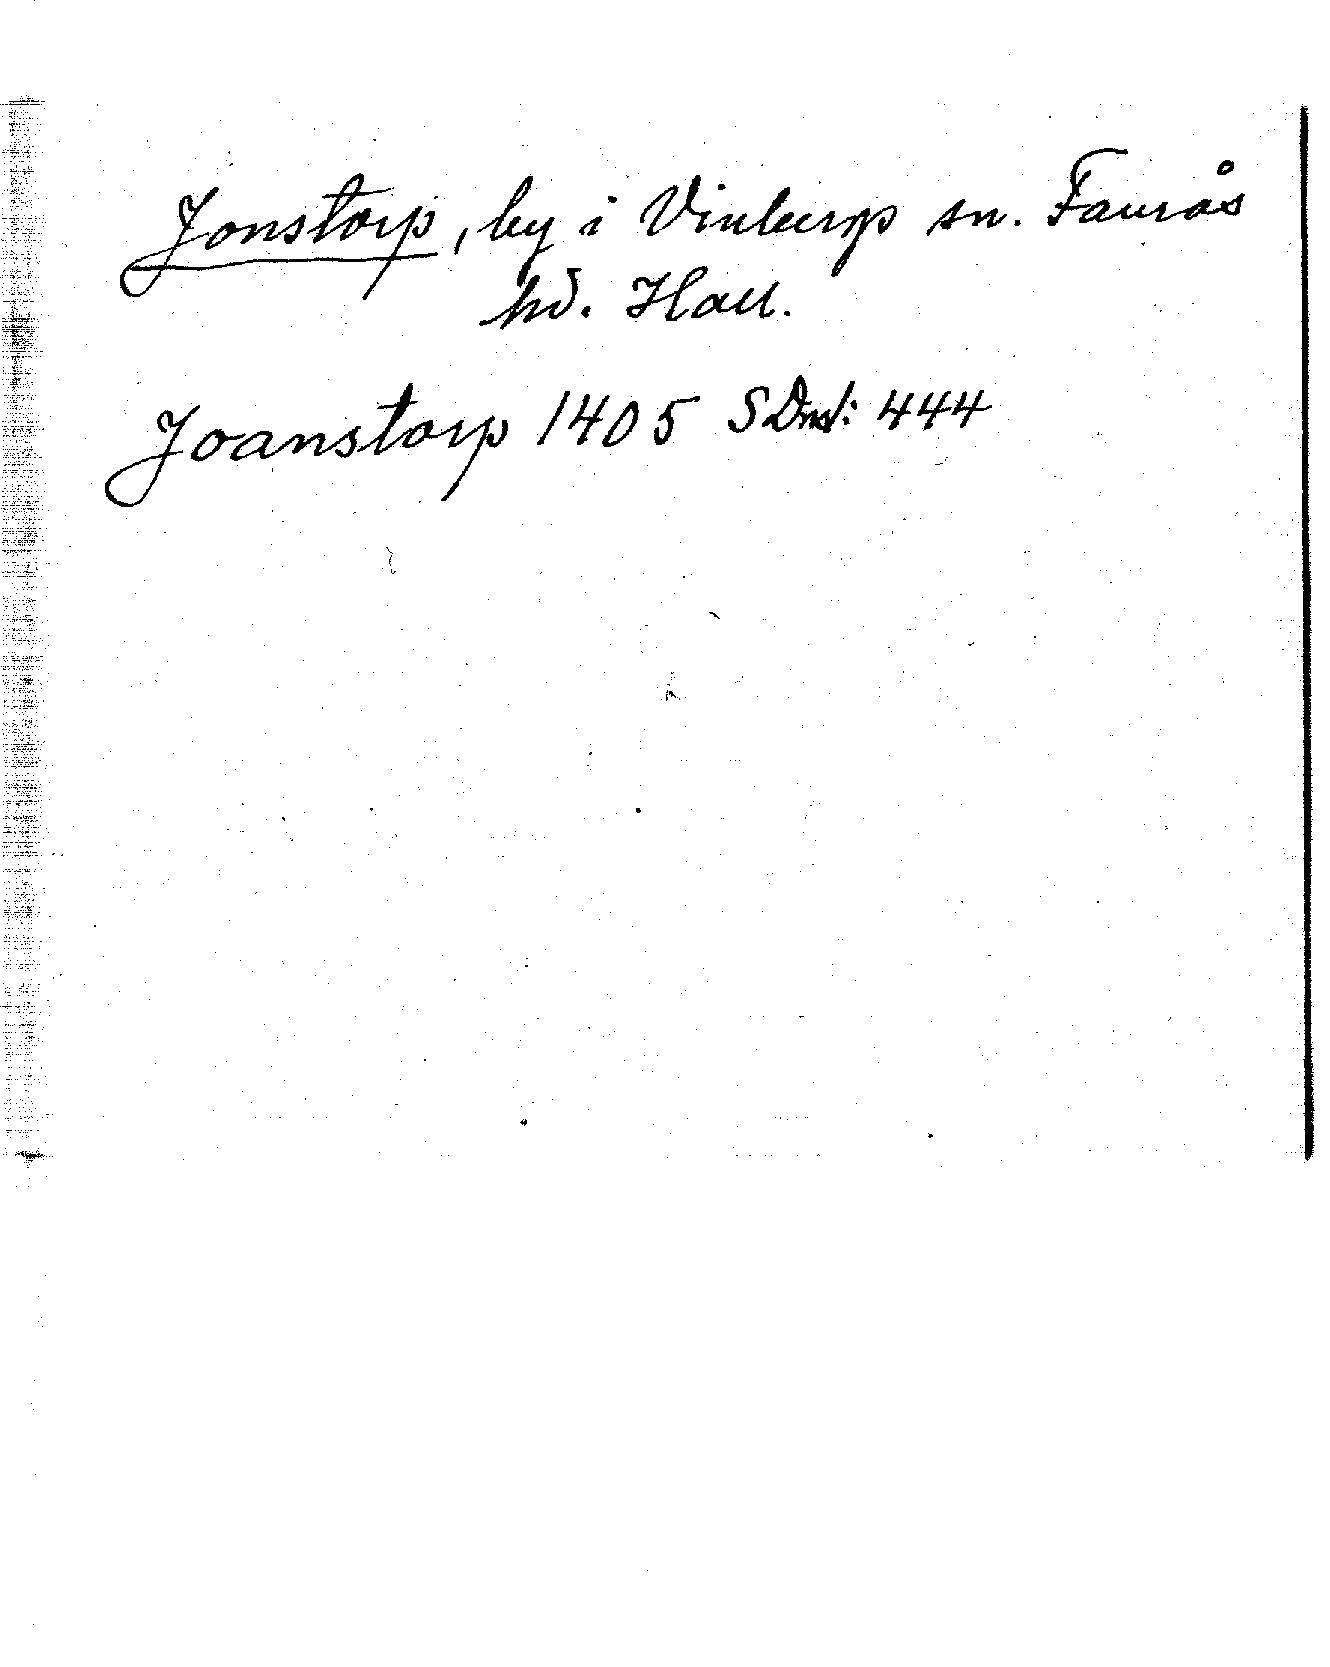 Jonstorp, by i Vinbergs sn. Faurås
hd. Hall.
Joanstorp 1405 SDns1: 444